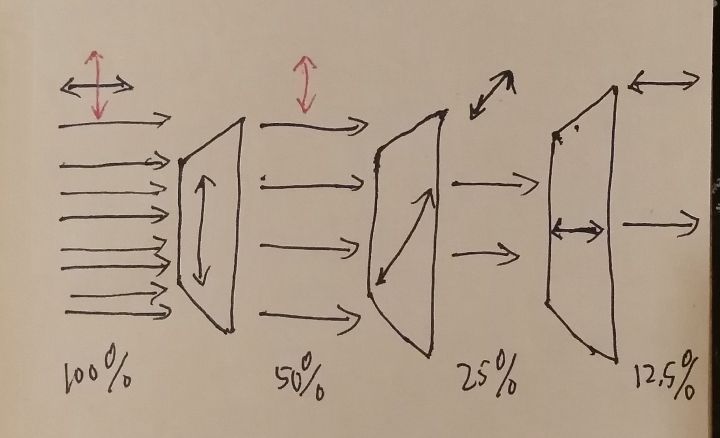 100% 50% 25% 12.5%